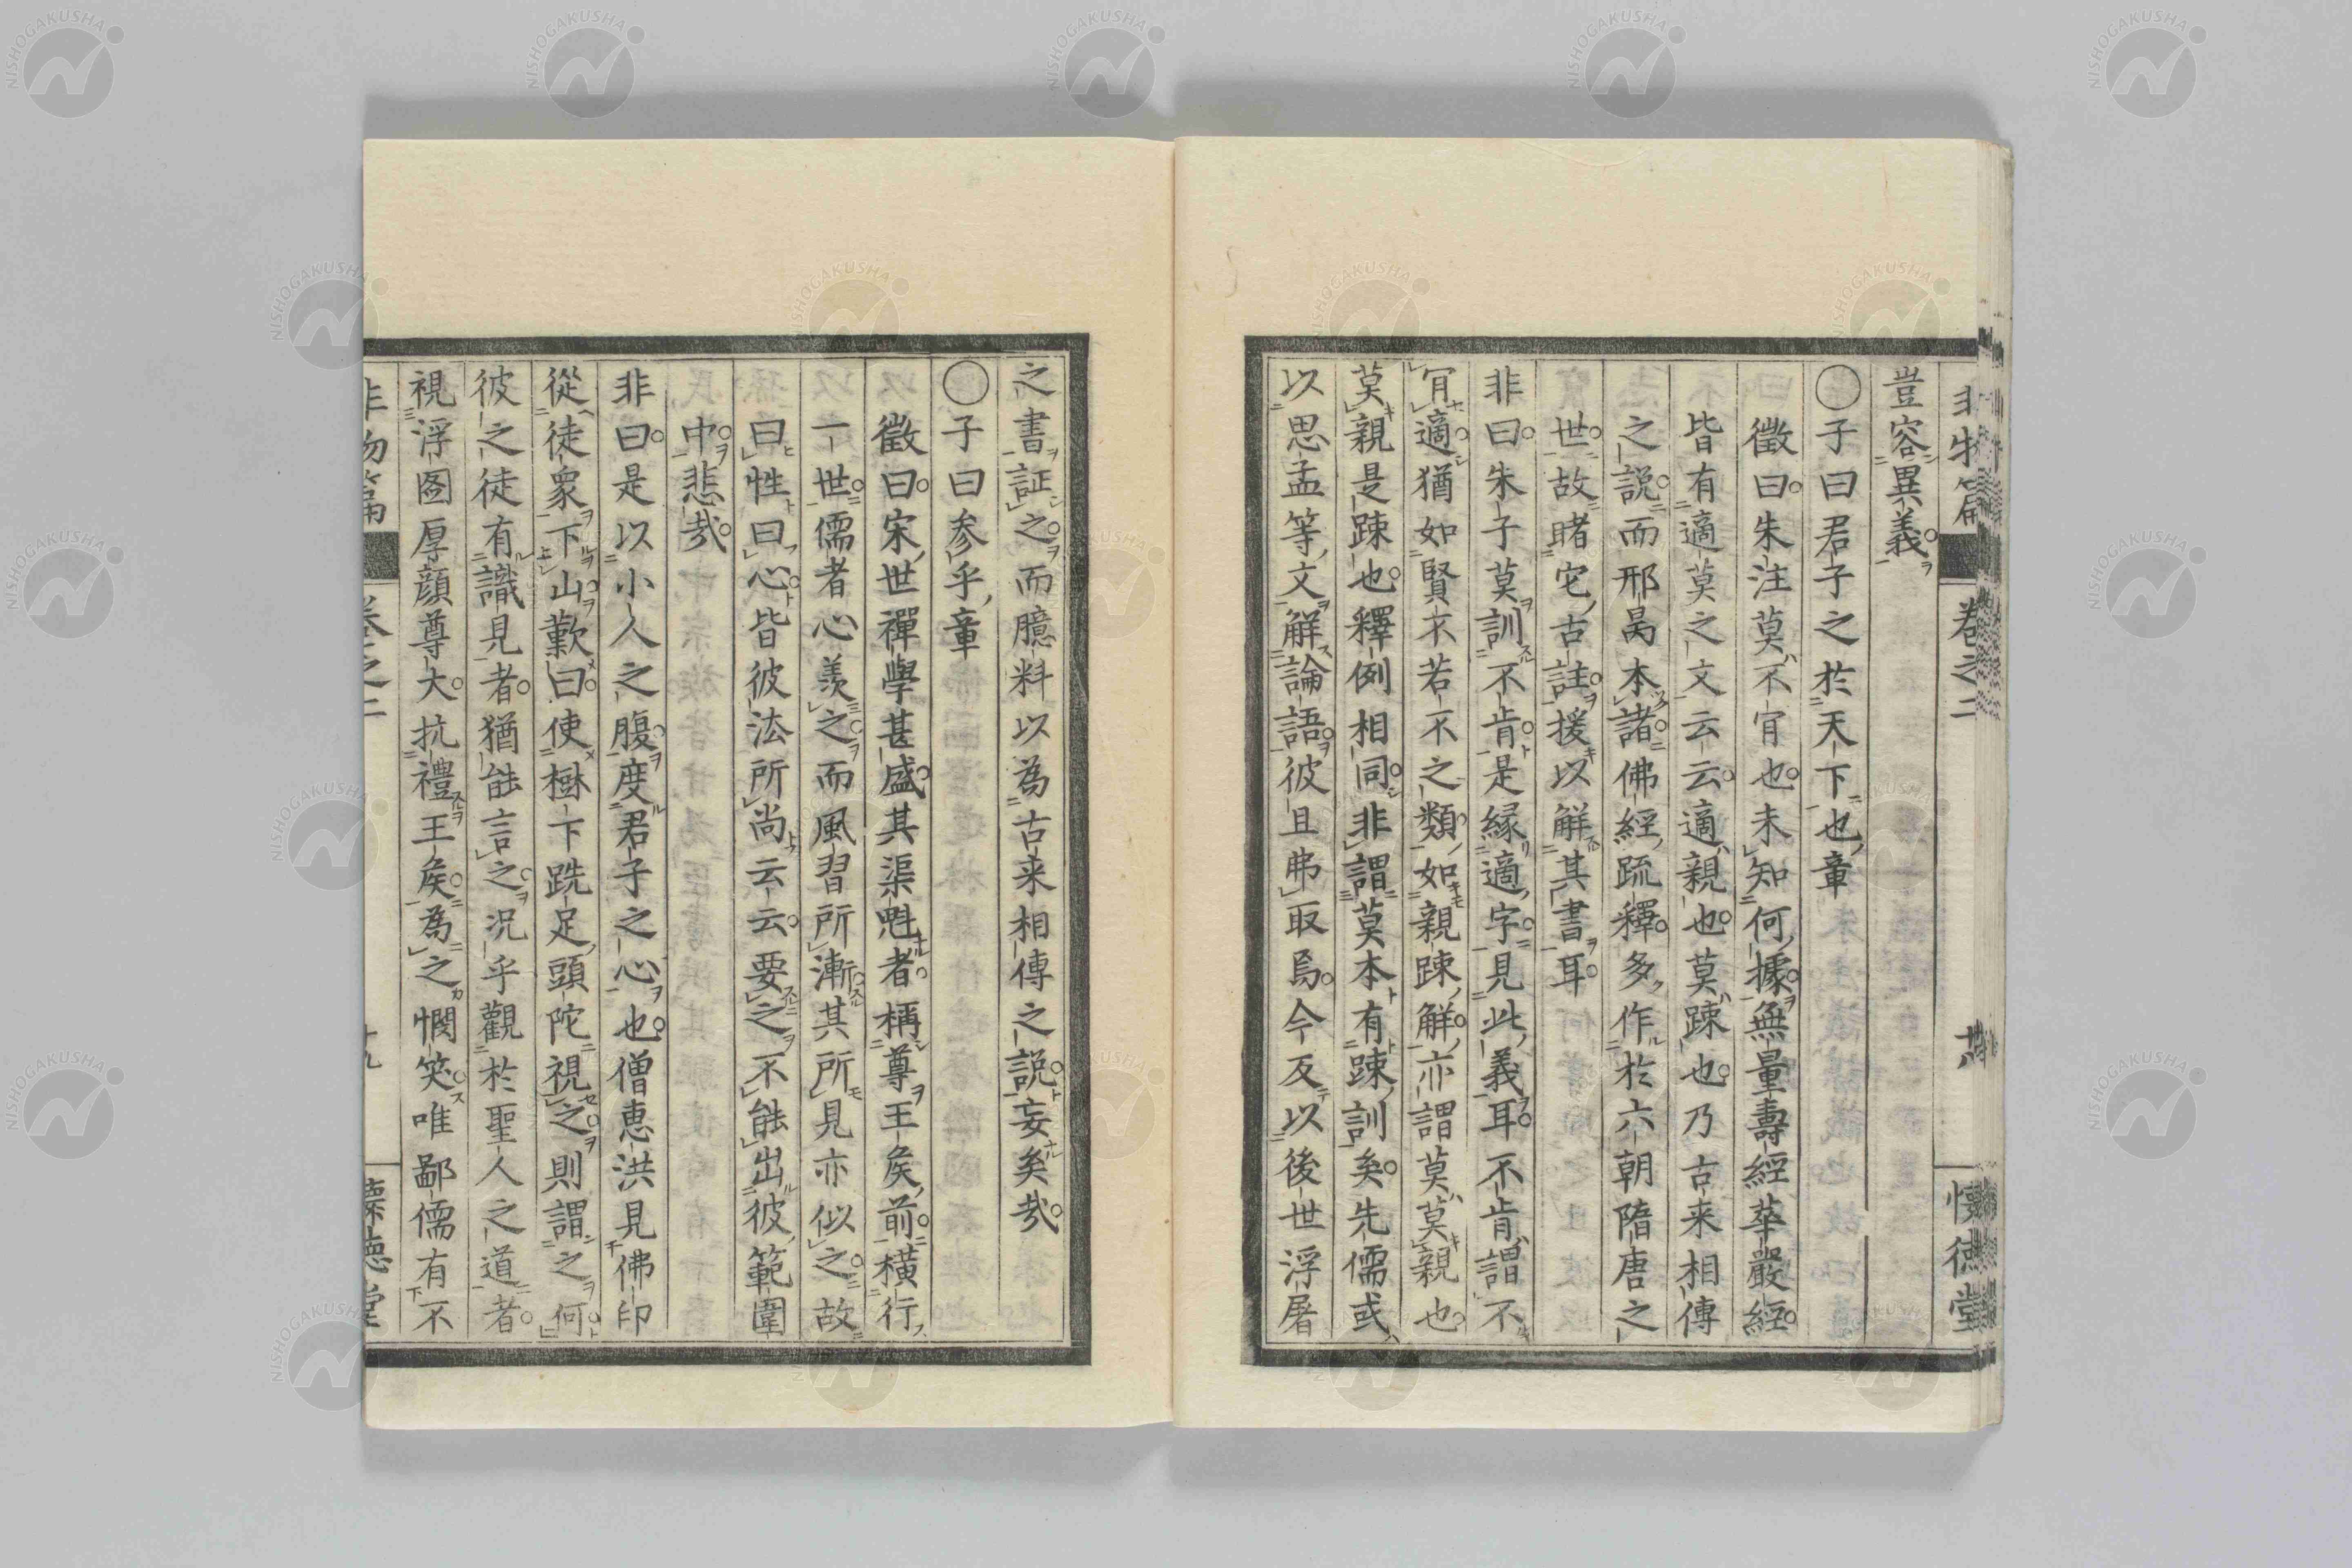 非物篇 卷之二 懷德堂
豈容異義
〇子曰君子之於天下也章
徵曰朱注莫不肎也未知何據無量壽經華嚴經
皆有適莫之文云云適親也莫踈也乃古来相傳
之説而邢昺本諸佛經疏釋多作於六朝隋唐之
世故睹它古註援以解其書耳
非曰朱子莫訓不肯是緣適字見此義耳不肯謂不
肎適猶如賢不若不之類如親踈解亦謂莫莫親也
莫親是踈也釋例相同非謂莫本有踈訓矣先儒或
以思孟等文解論語彼且弗取焉今反以後世浮屠
之書証之而臆料以為古来相傳之説妄矣哉
〇子曰参乎章
徵曰宋世禪學甚盛其渠魁者稱尊王矦前橫行
一世儒者心羨之而風習所漸其所見亦似之故
曰性曰心皆彼法所尚云云要之不能出彼範圍
中悲哉
非曰是以小人之腹度君子之心也僧惠洪見佛印
從徒衆下山歎曰使櫯下跣足頭陀視之則謂之何
彼之徒有識見者猶能言之况乎觀於聖人之道者
視浮圖厚顔尊大抗禮王矦為之憫笑唯鄙儒有不
非物篇 卷之二 十九 懷德堂